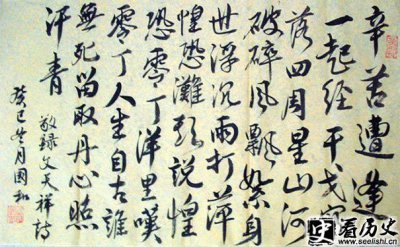 辛苦遭逢
一起经干戈寥
落四周星山河
破碎风飘絮身
世浮沉雨打萍
惶恐滩頭説惶
恐零丁洋里嘆
零丁人生自古誰
無死留取丹心照
汗青
敬録文天祥詩
癸巳 月国
看历史
www.seelishi.cn